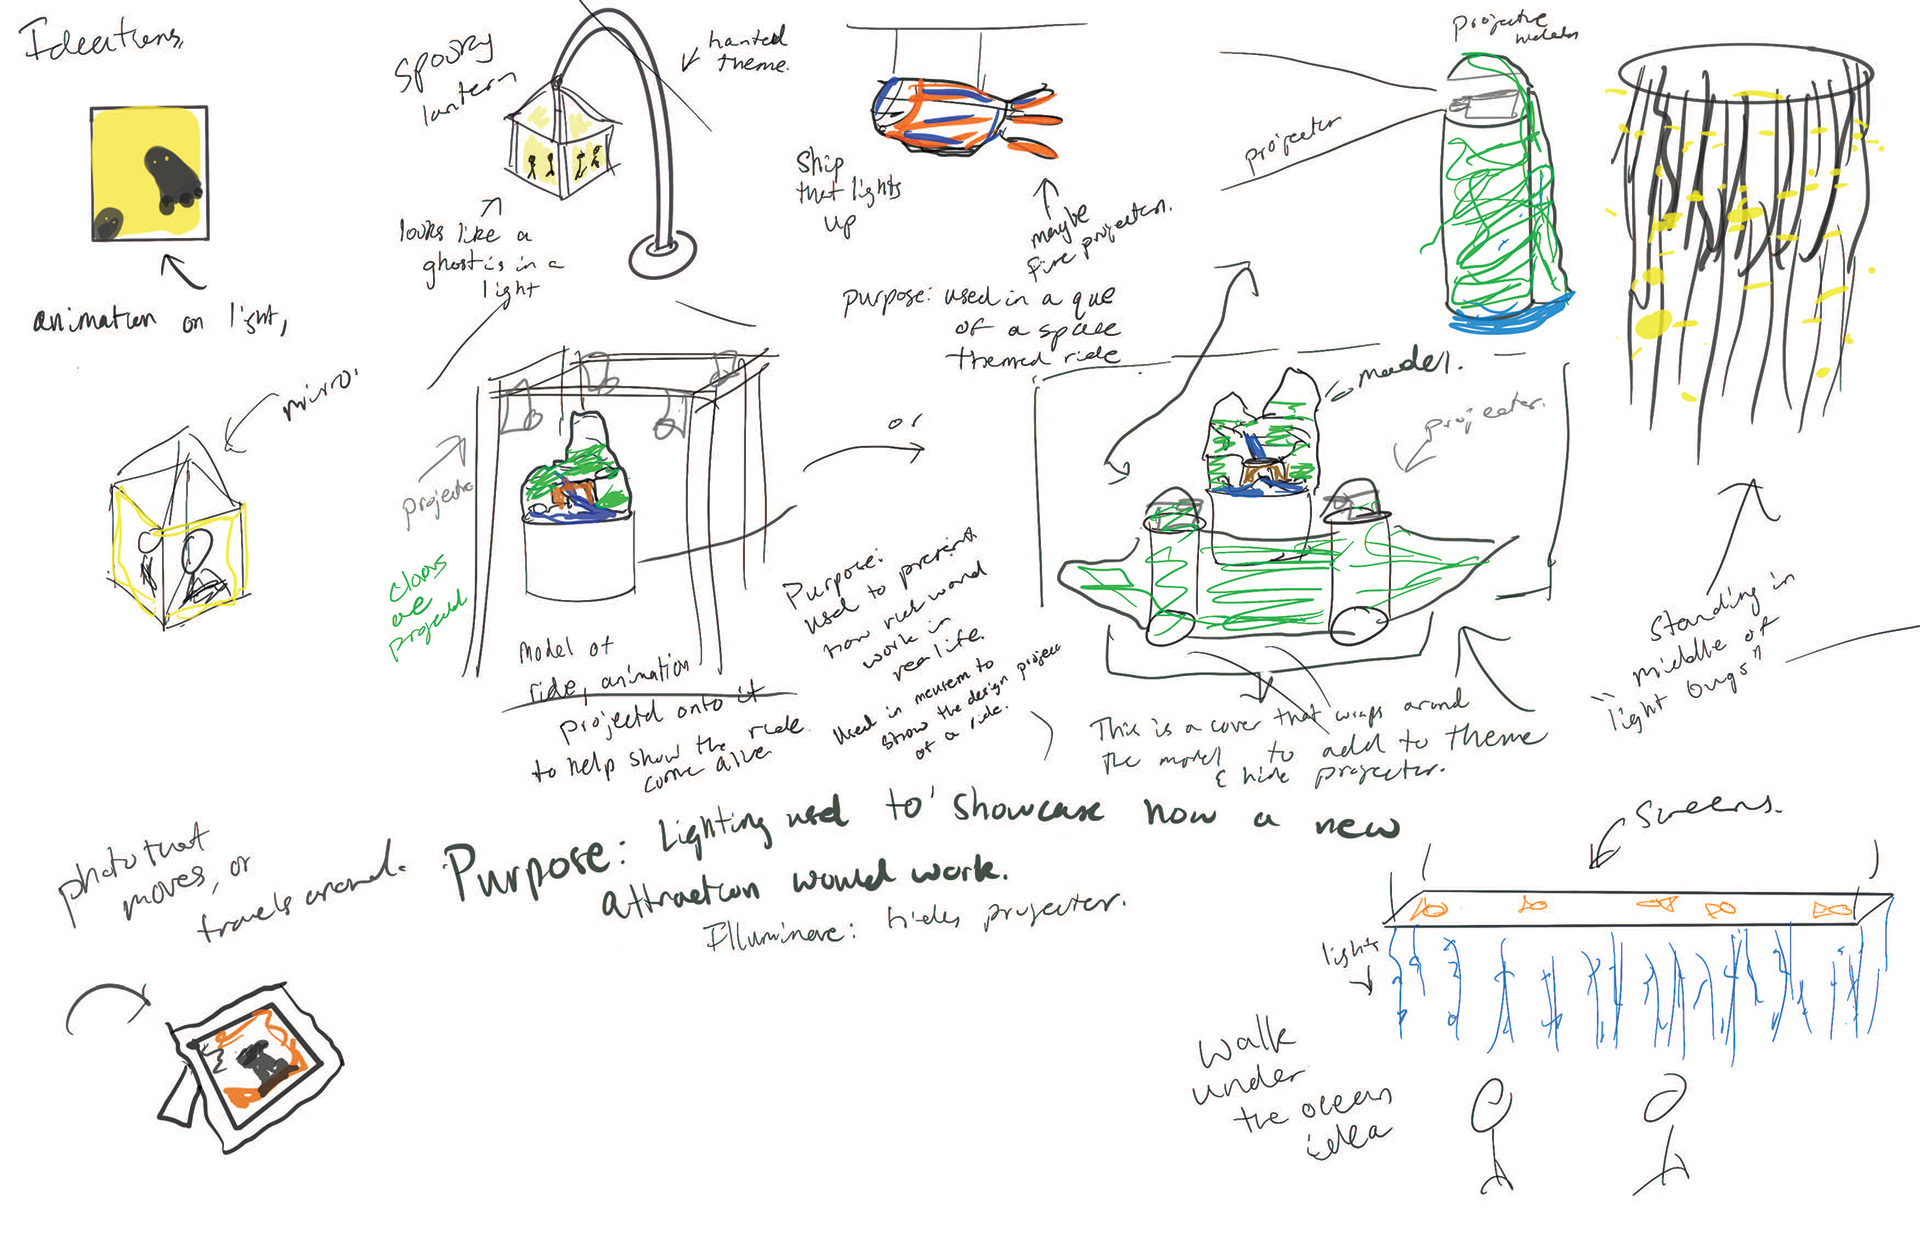 Ideations,
animation on light,
spooky
lantern
hanted
theme.
looks like a
ghost is in a
light
Ship
that lights
up
maybe
fire projection.
purpose: used in a que
of a space
themed ride
projector
projective
mirror
projector
are
projected
Model of
ride, animation
projectd onto it
to help show the ride
come alive
or
Purpose:
used to present
how ride would
work in
real life.
used in museum to
show the design
of a ride.
model.
projector.
This is a cover that wraps around
the model to add to theme
& hide projector.
standing in
middle of
"light bugs"
photo that
moves, or
travels around.
Purpose: Lighting used to showcase how a new
attraction would work.
Illuminare: hides projector.
screens.
lights
walk
under
the ocean
idea